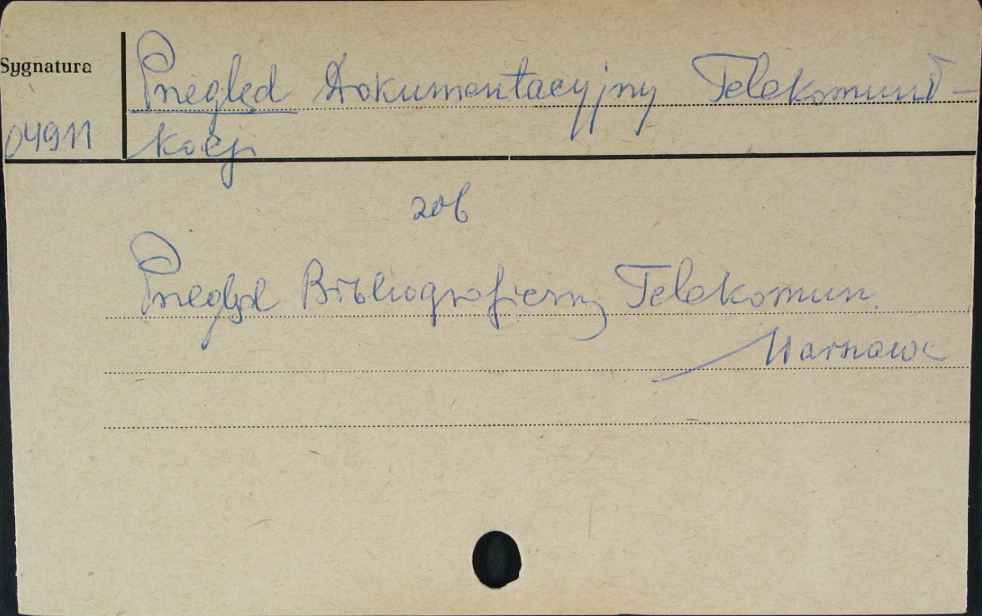 Sygnatura
Przegląd Dokumentacyjny Telekomuni-
04911 kacji
zob
Przegląd Bibliograficzny Telekomun.
Warszawa